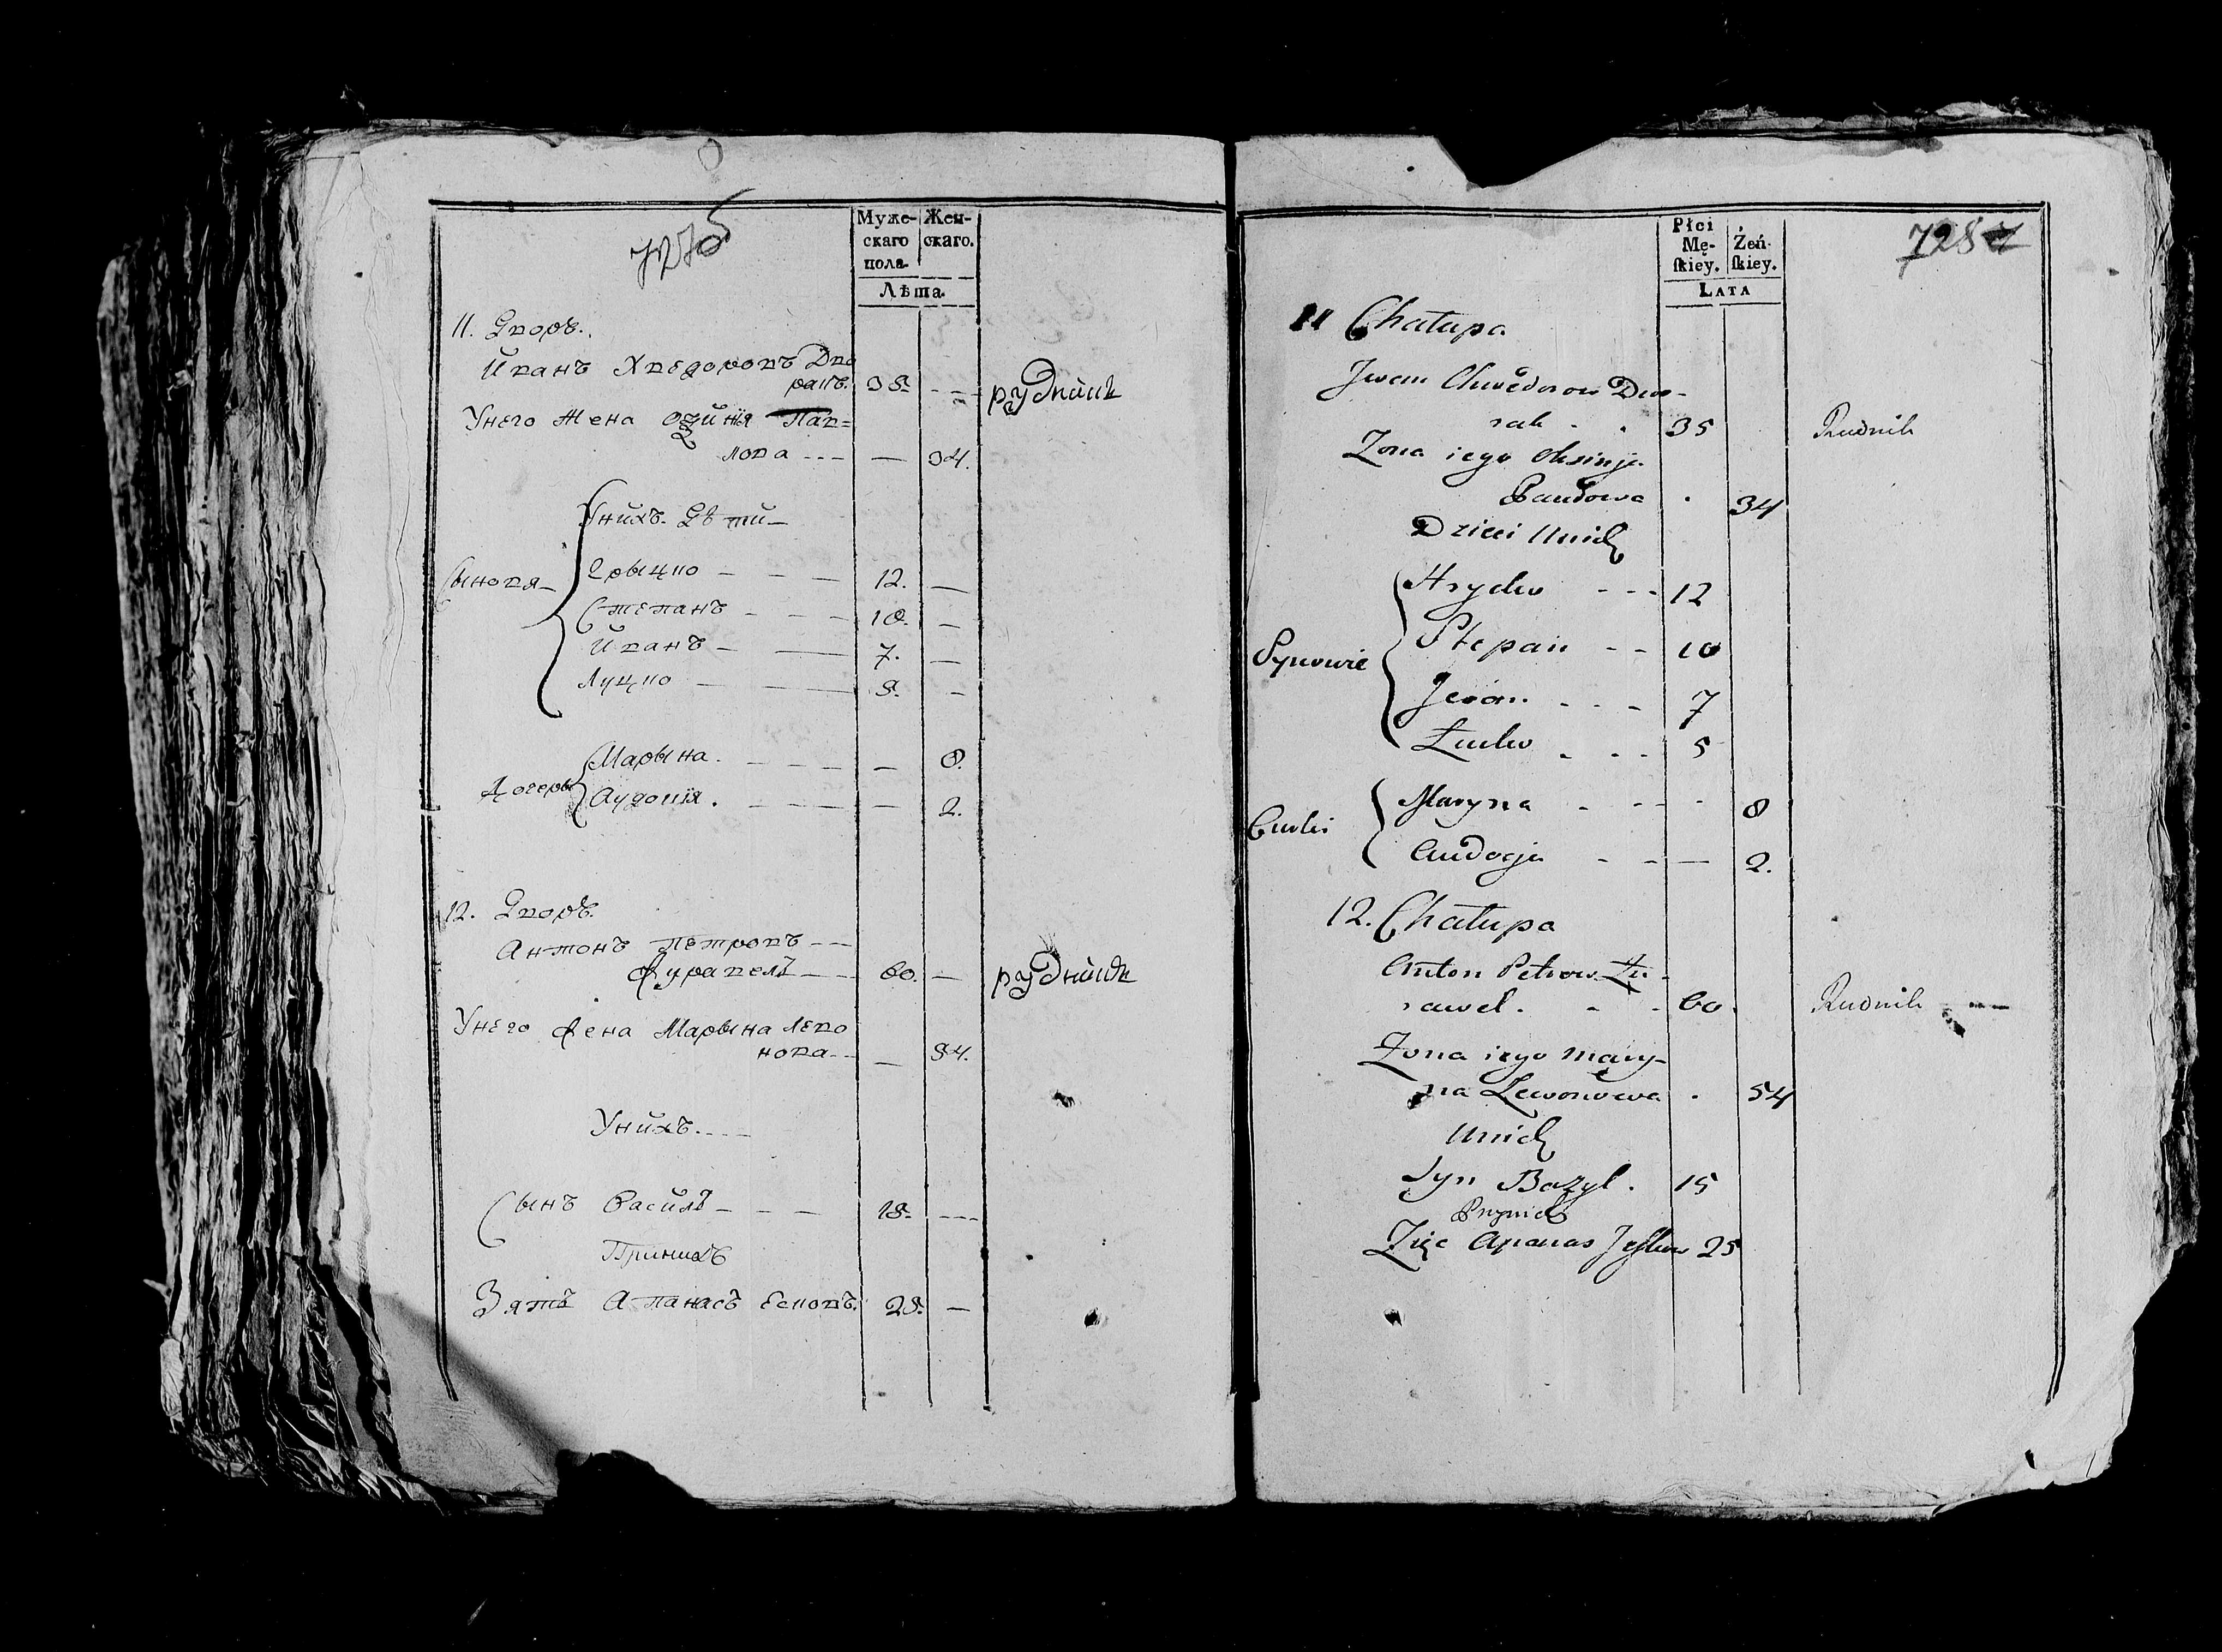 Муже-
скаго
пола.
Жен-
скаго.
Лѣта.
11. Дворъ.
Иванъ Хведоровъ Дво
ракъ. 35. --
рудникъ
Унего жена Оѯиния Пав=
лова --- — 34.
Унихъ. Дѣти —
Сыновя —
Грыцко — — — 12. —
Степанъ - — — 10. —
Иванъ — — 7. —
Луцко — — 5. —
Дочеры
Марына. - — — — — 8.
Аудокия. - — — — — 2.
12. Дворъ.
Антонъ Петровъ --
Журавель — — 60. —
рудникъ
Унего жена Марына Лево
нова -- — 54.
Унихъ. ---
Сынъ Василь — — — 15. ---
Принихъ
Зять Апанасъ Есковъ. 25. —
Płci
Mę-
ſkiey.
Żeń-
ſkiey.
LATA
728
11 Chałupa
Jwan Chwedorow Dwo-
rak . . 35
Rudnik
Żona iego Oksinja
Paułowa . 34
Dzieci Unich
Synowie
Hrycko - - - 12
Stepan - - 10
Jwan. - - - 7
Łucko - - - 5
Curki
Maryna - -- - 8
Audocja - - — 2.
12. Chałupa
Anton Petrow Żu-
rawel. - - 60.
Rudnik - --
Żona iego Mary-
na Lewonowa . 54
Unich
Syn Bazyl. 15
Przynich
Zięc Apanas Jeſkow 25